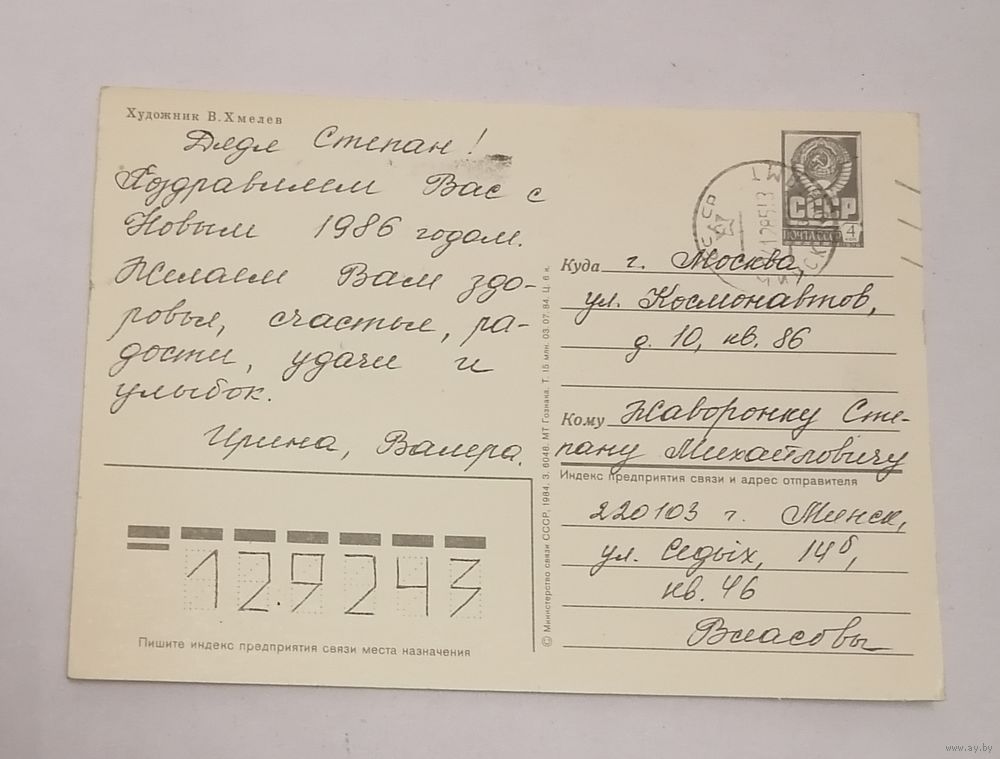 Художник В. Хмелев
Дядя Степан!
Поздравляем Вас с
Новым 1986 годом.
Желаем Вам здо-
ровья, счастья, ра-
дости, удачи и
улыбок.
Ирина, Валера.
129243
Пишите индекс предприятия связи места назначения
© Министерство связи СССР, 1984. З. 6048. МТ Гознака. Т. 15 млн. 03.07.84. Ц. 6 к.
СССР
ПОЧТА СССР 4
Куда г. Москва,
ул. Космонавтов,
д. 10, кв. 86
Кому Жаворонку Сте-
пану Михайловичу
Индекс предприятия связи и адрес отправителя
220103 г. Минск,
ул. Седых, 14б,
кв. 46
Власовы
www.ay.by